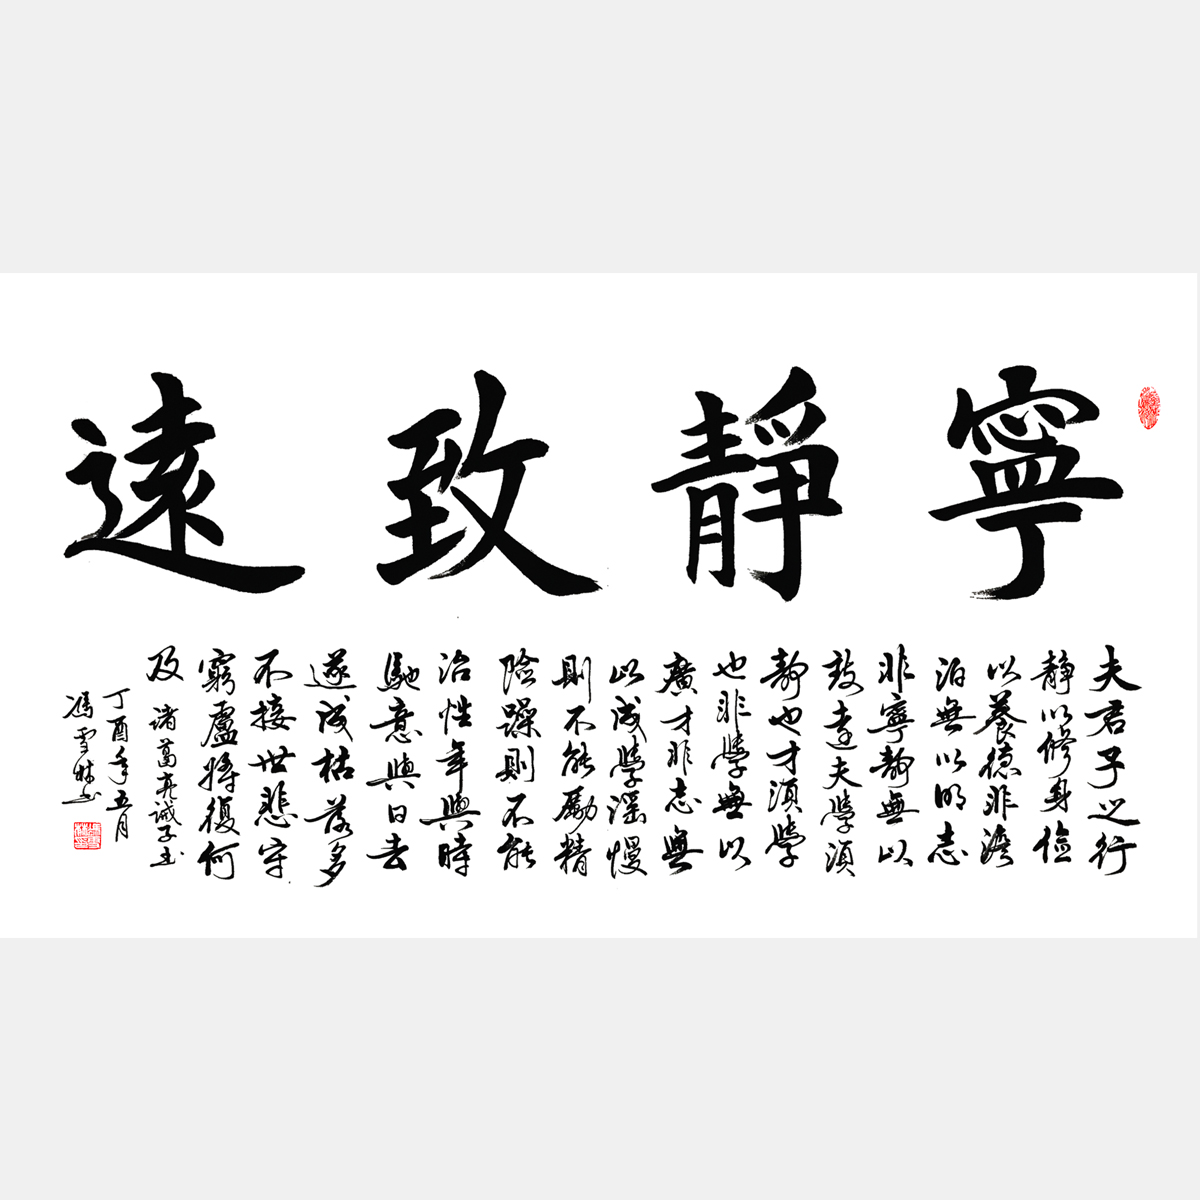 寧靜致遠
夫君子之行
靜以修身儉
以養德非澹
泊無以明志
非寧靜無以
致遠夫學須
靜也才須學
也非學無以
廣才非志無
以成學滛慢
則不能勵精
險躁則不能
治性年與時
馳意與日去
遂成枯落多
不接世悲守
窮盧將復何
及 諸葛亮誡子書
丁酉年五月
馮雪林書